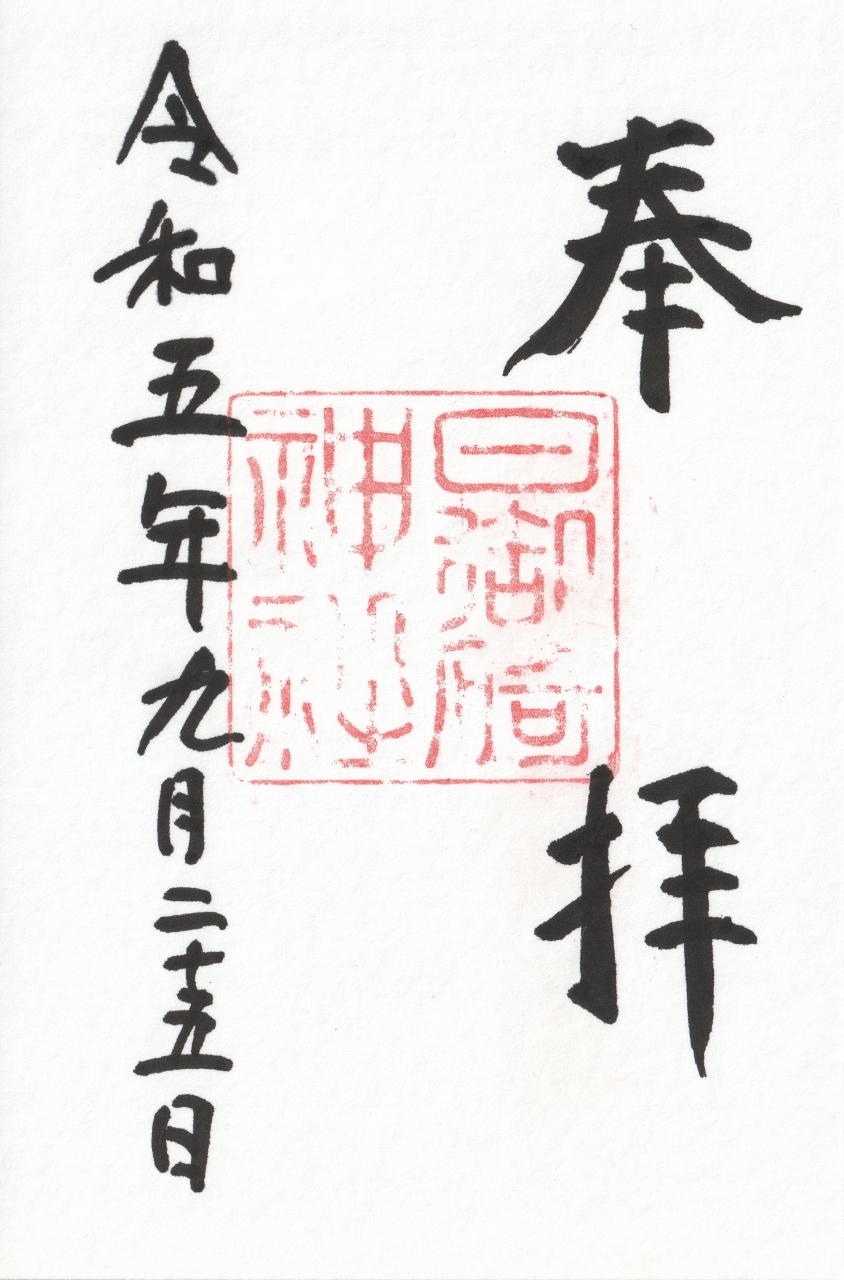 奉拝
日御碕
神社
令和五年九月二十五日